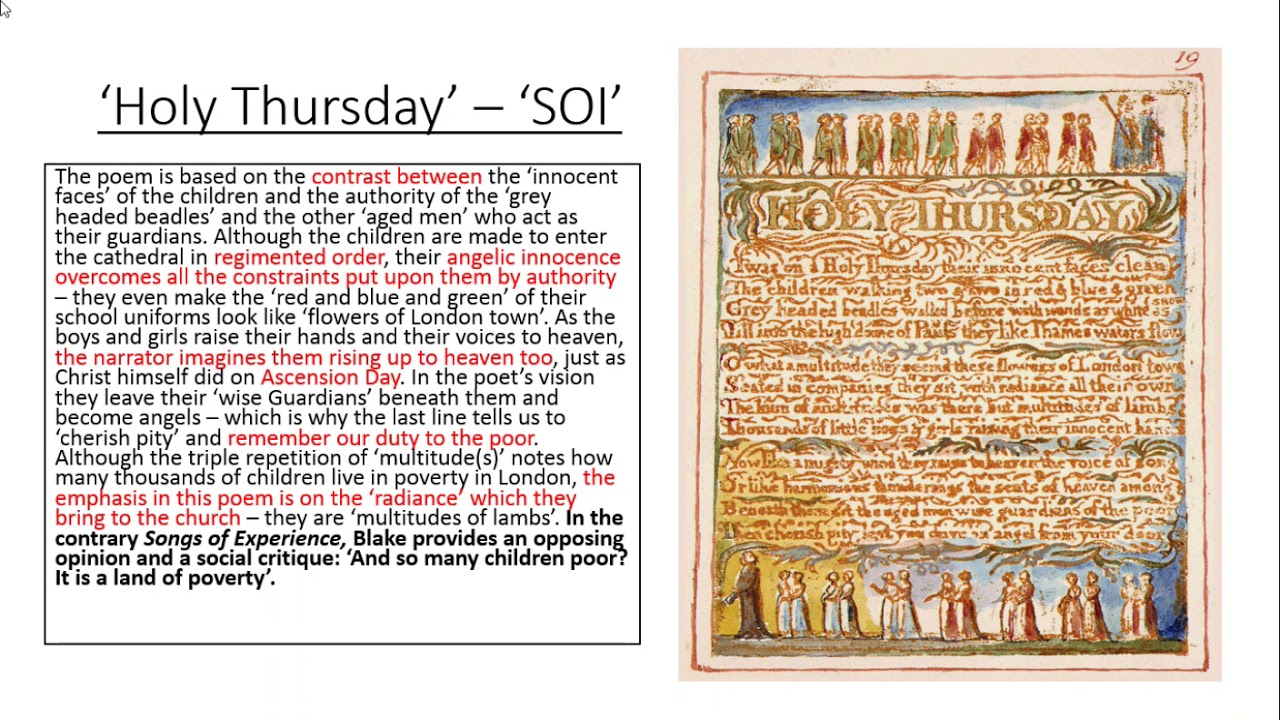 ‘Holy Thursday’ – ‘SOI’
The poem is based on the contrast between the ‘innocent
faces’ of the children and the authority of the ‘grey
headed beadles’ and the other ‘aged men’ who act as
their guardians. Although the children are made to enter
the cathedral in regimented order, their angelic innocence
overcomes all the constraints put upon them by authority
– they even make the ‘red and blue and green’ of their
school uniforms look like ‘flowers of London town’. As the
boys and girls raise their hands and their voices to heaven,
the narrator imagines them rising up to heaven too, just as
Christ himself did on Ascension Day. In the poet’s vision
they leave their ‘wise Guardians’ beneath them and
become angels – which is why the last line tells us to
‘cherish pity’ and remember our duty to the poor.
Although the triple repetition of ‘multitude(s)’ notes how
many thousands of children live in poverty in London, the
emphasis in this poem is on the ‘radiance’ which they
bring to the church – they are ‘multitudes of lambs’. In the
contrary Songs of Experience, Blake provides an opposing
opinion and a social critique: ‘And so many children poor?
It is a land of poverty’.
19
HOLY THURSDAY
Twas on a Holy Thursday their innocent faces clean
The children walking two & two in red & blue & green
Grey headed beadles walkd before with wands as white as
snow
Till into the high dome of Pauls they like Thames waters flow
O what a multitude they seemd these flowers of London town
Seated in companies they sit with radiance all their own
The hum of multitudes was there but multitudes of lambs
Thousands of little boys & girls raising their innocent hands
Now like a mighty wind they raise to heaven the voice of song
Or like harmonious thunderings the seats of heaven among
Beneath them sit the aged men wise guardians of the poor
Then cherish pity, lest you drive an angel from your door